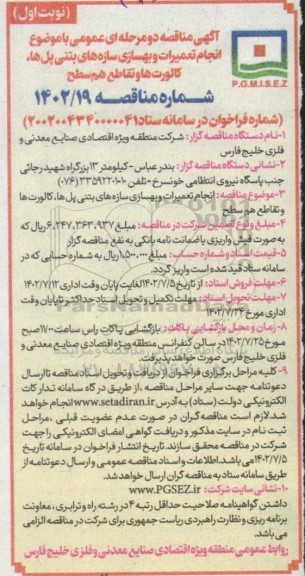 (نوبت اول)
آگهی مناقصه دو مرحله ای عمومی با موضوع
انجام تعمیرات و بهسازی سازه های بتنی پل ها،
کالورت ها و تقاطع هم سطح
P.G.M.I.S.E.Z
شماره مناقصه ۱۴۰۲/۱۹
(شماره فراخوان در سامانه ستاد ۲۰۰۲۰۰۴۳۴۰۰۰۰۰۴۱)
۱-نام دستگاه مناقصه گزار: شرکت منطقه ویژه اقتصادی صنایع معدنی و
فلزی خلیج فارس
۲-نشانی دستگاه مناقصه گزار: بندر عباس- کیلومتر ۱۳ بزرگراه شهید رجائی
جنب پاسگاه نیروی انتظامی خونسرخ - تلفن ۳۳۵۹۲۲۰۱۰ (۰۷۶)
۳-موضوع مناقصه: انجام تعمیرات و بهسازی سازه های بتنی پل ها، کالورت ها و
و تقاطع هم سطح
۴-مبلغ و نوع تضمین شرکت در مناقصه: مبلغ ۶،۲۴۷،۳۶۳،۹۳۷ ریال که
به صورت فیش واریزی یا ضمانت نامه بانکی به نفع مناقصه گزار
۵-قیمت اسناد و شماره حساب: مبلغ ۱،۵۰۰،۰۰۰ ریال به شماره حسابی که در
سامانه ستاد قید شده است واریز گردد.
۶-مهلت فروش اسناد: از تاریخ ۱۴۰۲/۷/۵ لغایت پایان وقت اداری ۱۴۰۲/۷/۱۲
۷-مهلت تحویل اسناد: مهلت تکمیل و تحویل اسناد حداکثر تا پایان وقت
اداری مورخ ۱۴۰۲/۷/۲۴
۸- زمان و محل بازگشایی پاکات: بازگشایی پاکات راس ساعت ۱۷:۰۰ صبح
مورخ ۱۴۰۲/۷/۲۵ در سالن کنفرانس منطقه ویژه اقتصادی صنایع معدنی و
فلزی خلیج فارس صورت خواهد پذیرفت.
۹- کلیه مراحل برگزاری فراخوان از دریافت و تحویل اسناد مناقصه تا ارسال
دعوتنامه جهت سایر مراحل مناقصه، از طریق درگاه سامانه تدارکات
الکترونیکی دولت (ستاد) به آدرس www.setadiran.ir انجام خواهد
شد. لازم است مناقصه گران در صورت عدم عضویت قبلی، مراحل
ثبت نام در سایت مذکور و دریافت گواهی امضای الکترونیکی را جهت
شرکت در مناقصه محقق سازند. تاریخ انتشار فراخوان در سامانه تاریخ
۱۴۰۲/۷/۵ می باشد. اطلاعات و اسناد مناقصه عمومی و ارسال دعوتنامه از
طریق سامانه ستاد به مناقصه گران ارسال خواهد شد.
۱۰-نشانی سایت شرکت: www.PGSEZ.ir
داشتن گواهینامه صلاحیت حداقل رتبه ۴ در رشته راه و ترابری، معاونت
برنامه ریزی و نظارت راهبردی ریاست جمهوری برای شرکت در مناقصه الزامی
می باشد.
روابط عمومی منطقه ویژه اقتصادی صنایع معدنی و فلزی خلیج فارس